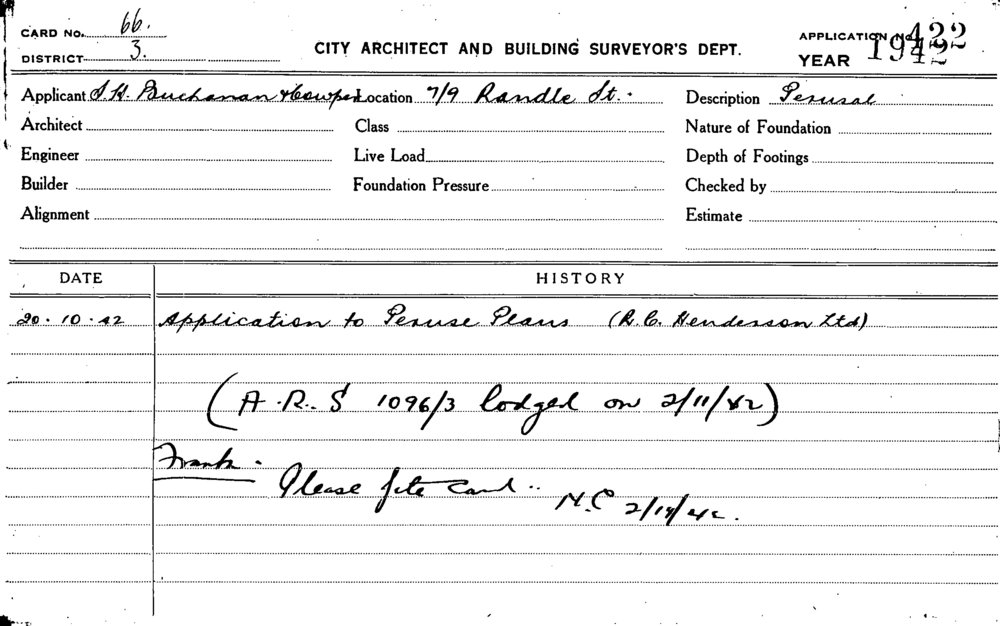 CARD No. 66.
DISTRICT 3.
CITY ARCHITECT AND BUILDING SURVEYOR'S DEPT.
APPLICATION No. 422
YEAR 1942
Applicant S. H. Buchanan & Cowper Location 7/9 Randle St. Description Perusal
Architect Class Nature of Foundation
Engineer Live Load Depth of Footings
Builder Foundation Pressure Checked by
Alignment Estimate
DATE HISTORY
20.10.42 Application to Peruse Plans (R. C. Henderson Ltd)
(A.R.S 1096/3 lodged on 2/11/42)
Frank.
Please file card..
N.C 2/ /42.